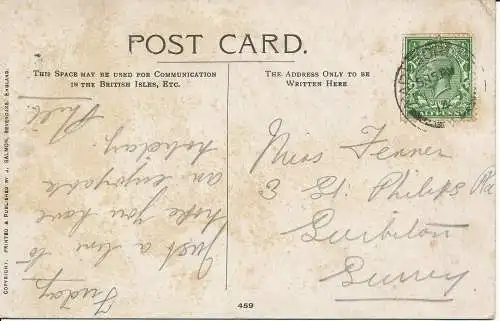 POST CARD.
THIS SPACE MAY BE USED FOR COMMUNICATION
IN THE BRITISH ISLES, ETC.
THE ADDRESS ONLY TO BE
WRITTEN HERE
HALFPENNY
Friday
Just a line to
hope you have
an enjoyable
holiday.
Phil.
Miss Fenner
3 St. Philips Rd
Surbiton
Surrey
COPYRIGHT. PRINTED & PUBLISHED BY J. SALMON, SEVENOAKS, ENGLAND.
459